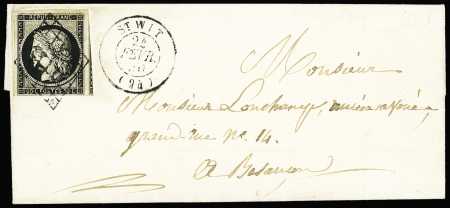 REPUB. FRANC.
20 C. POSTES 20 C.
ST WIT
24
FEVR.
(24)
Monsieur
Monsieur Lonchamp,
grande rue N°. 14.
A Besançon